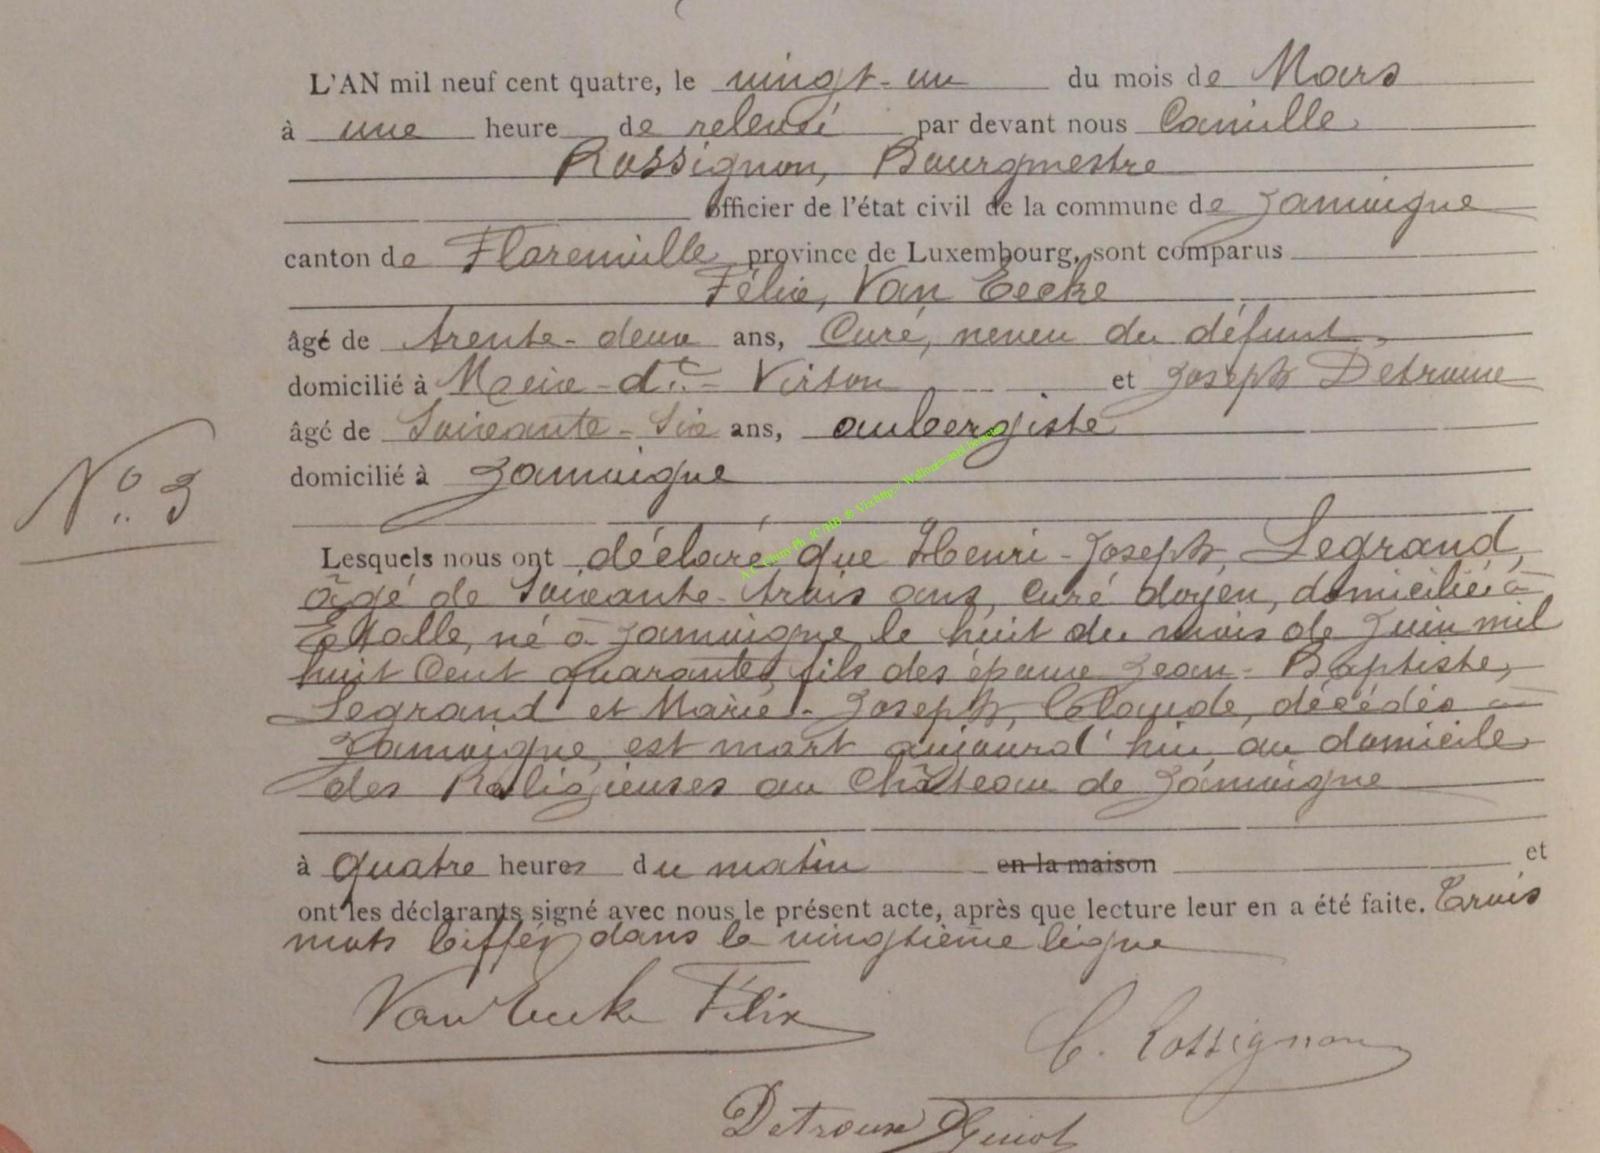 L'AN mil neuf cent quatre, le vingt-un du mois de Mars
à une heure de relevée par devant nous Camille
Rossignon, Bourgmestre
officier de l'état civil de la commune de Jamoigne
canton de Florenville province de Luxembourg, sont comparus
Félix, Van Eecke
âgé de trente-deux ans, Curé, neveu du défunt,
domicilié à Meix-dt- Virton et Joseph Detroux
âgé de Soixante-Six ans, aubergiste
domicilié à Jamoigne
N° 3
Lesquels nous ont déclaré que Henri-Joseph, Legrand,
âgé de Soixante-trois ans, curé doyen, domicilié à
Etalle, né à Jamoigne le huit du mois de Juin mil
huit Cent quarante, fils des époux Jean-Baptiste,
Legrand et Marie-Joseph, Claude, décédés à
Jamoigne, est mort aujourd'hui au domicile
des Religieuses au Château de Jamoigne
à quatre heures du matin en la maison et
ont les déclarants signé avec nous le présent acte, après que lecture leur en a été faite. Trois
mots biffés dans la vingtième ligne
Van Eecke Félix
C. Rossignon
Detroux